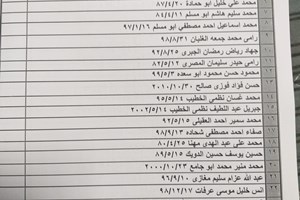 محمد علي خليل أبو حمادة ٨٧/٤/٢٠
محمد سليم هاشم ابو مسلم ٨٤/٤/٤
محمد اسماعيل احمد مصطفي ابو مسلم ٩٧/١/١١
رامي محمد جمعة الغلبان ٩٨/٨/٣١
جهاد رياض رمضان الجبري ٩٢/٨/٢٥
رامي حيدر سليمان المصري ٨٢/٥/١٢
محمود حسن محمود ابو سعده ٩٩/٥/٣
حسن فؤاد فوزي صالح ٢٠١٠/١٠/٣٠
محمد غسان نظمي الخطيب ٩٥/٥/١٤
جبريل عبد اللطيف نظمي الخطيب ٢٠٠٢/٥/١٤
محمد سمير احمد العقيلي ٩٢/٥/١٥
صفاء احمد مصطفي شحاده ٩٨/٩/١٣
محمد علي عبد الهدي مهنا ٨٠/٤/٢٥
حسين يوسف حسين الدويك ٨٩/٥/١٥
محمد منير محمد ابو جامع ٢٠٠٠/١٠/٢٣
عبد الله عزام سليم مغازي ٩٦/٩/١٠
انس خليل موسى عرفات ٩٨/١٢/١٧